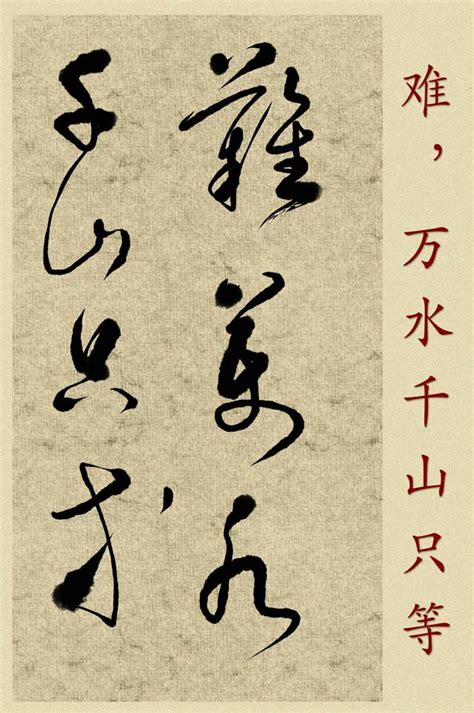 難萬水
千山只等
难，万水千山只等